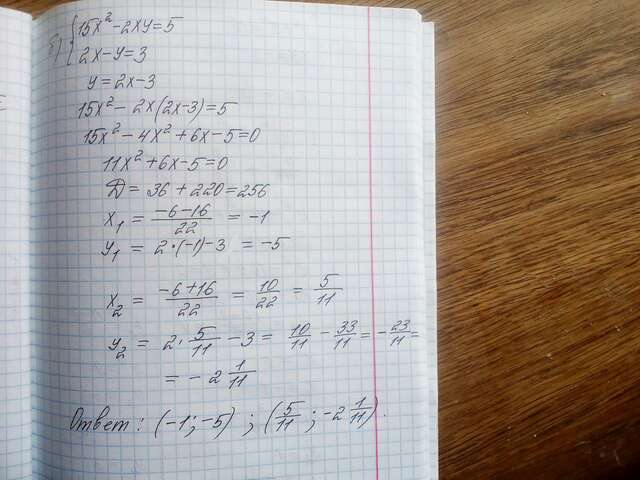 б) { 15x² - 2xy = 5
2x - y = 3
y = 2x - 3
15x² - 2x(2x-3) = 5
15x² - 4x² + 6x - 5 = 0
11x² + 6x - 5 = 0
Д = 36 + 220 = 256
x₁ = (-6-16)/22 = -1
y₁ = 2·(-1)-3 = -5
x₂ = (-6+16)/22 = 10/22 = 5/11
y₂ = 2·5/11 - 3 = 10/11 - 33/11 = -23/11 =
= -2 1/11
Ответ: (-1; -5) ; (5/11 ; -2 1/11).